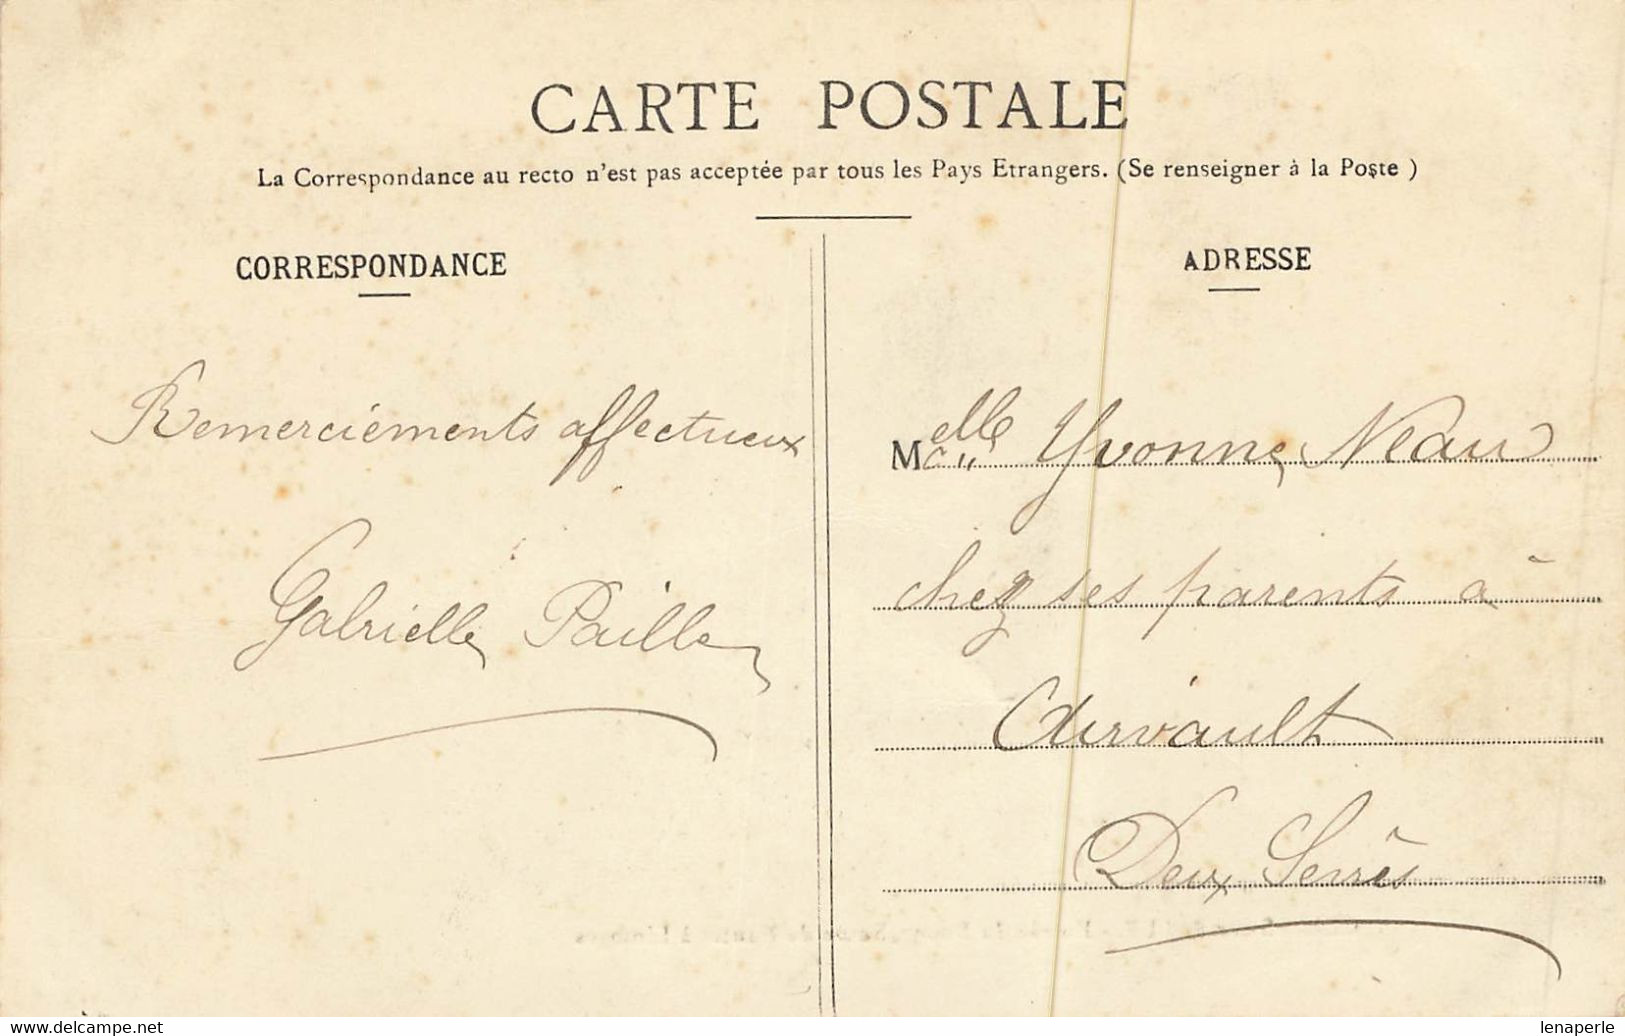 CARTE POSTALE
La Correspondance au recto n'est pas acceptée par tous les Pays Etrangers. (Se renseigner à la Poste )
CORRESPONDANCE
Remerciements affectueux
Gabrielle Paille
ADRESSE
Melle Yvonne Neau
chez ses parents à
Airvault
Deux Sèvres
www.delcampe.net
lenaperle